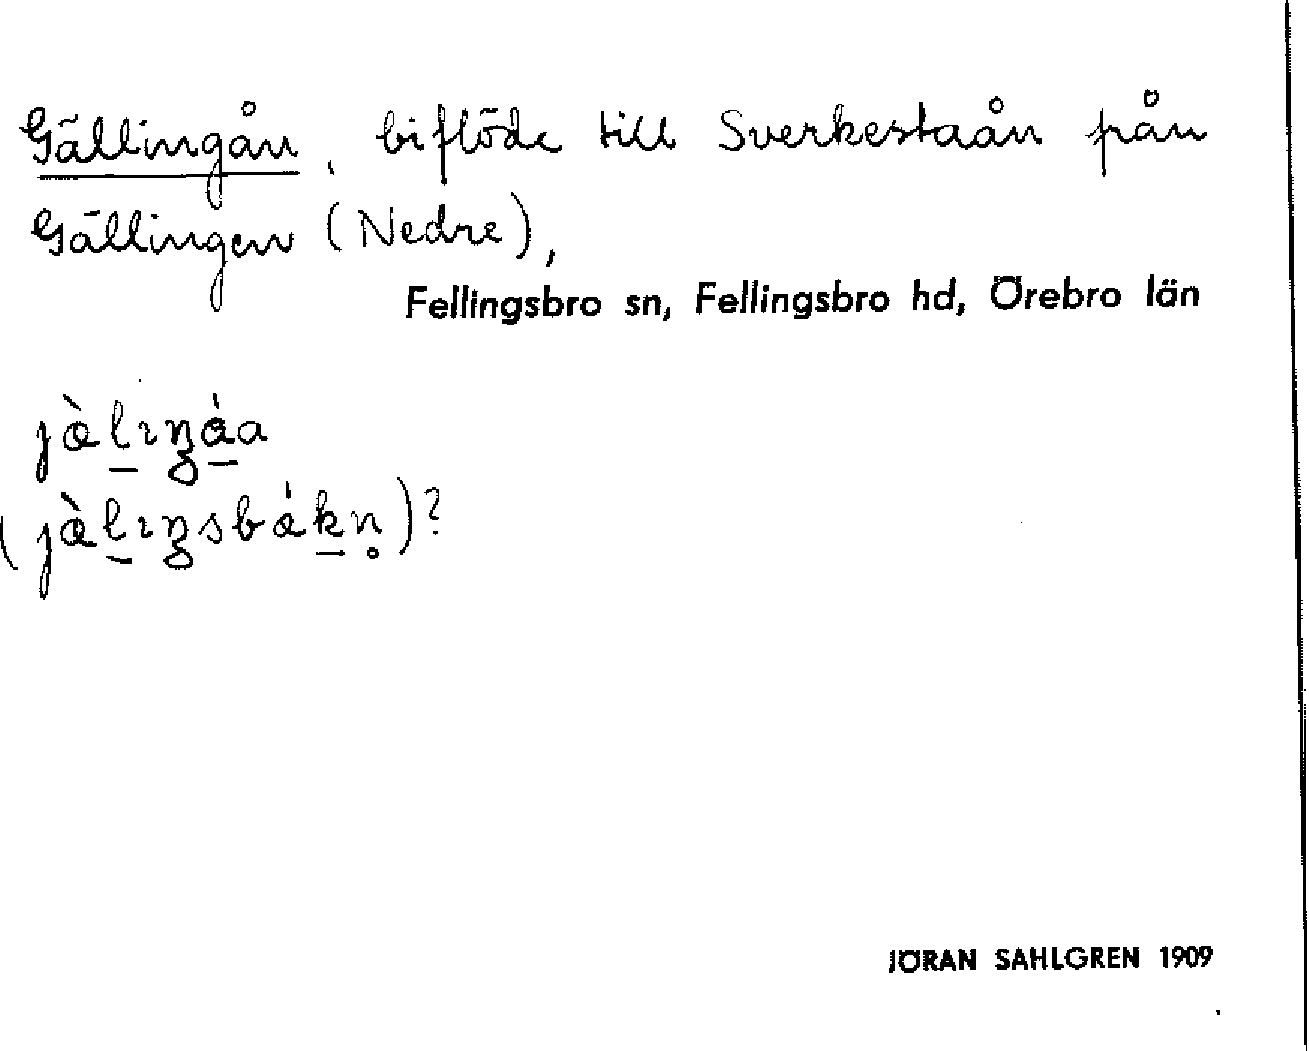 Gällingån, biflöde till Sverkestaån från
Gällingen (Nedre),
Fellingsbro sn, Fellingsbro hd, Örebro län
JÖRAN SAHLGREN 1909